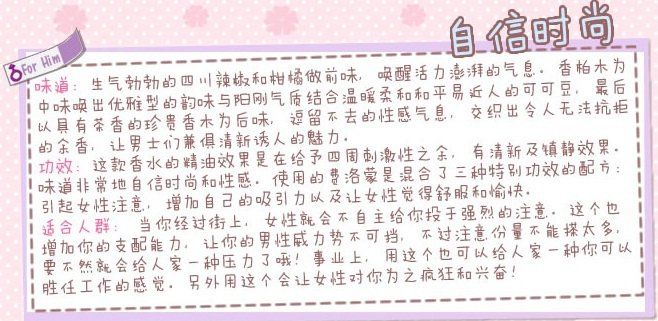 自信时尚
For Him
味道：生气勃勃的四川辣椒和柑橘做前味，唤醒活力澎湃的气息。香柏木为
中味唤出优雅型的韵味与阳刚气质结合温暖柔和和平易近人的可可豆，最后
以具有茶香的珍贵香木为后味，逗留不去的性感气息，交织出令人无法抗拒
的余香，让男士们兼俱清新诱人的魅力。
功效：这款香水的精油效果是在给予四周刺激性之余，有清新及镇静效果。
味道非常地自信时尚和性感。使用的费洛蒙是混合了三种特别功效的配方：
引起女性注意，增加自己的吸引力以及让女性觉得舒服和愉快。
适合人群：当你经过街上，女性就会不自主给你投于强烈的注意。这个也
增加你的支配能力，让你的男性威力势不可挡，不过注意份量不能搽太多，
要不然就会给人家一种压力了哦！事业上，用这个也可以给人家一种你可以
胜任工作的感觉。另外用这个会让女性对你为之疯狂和兴奋！